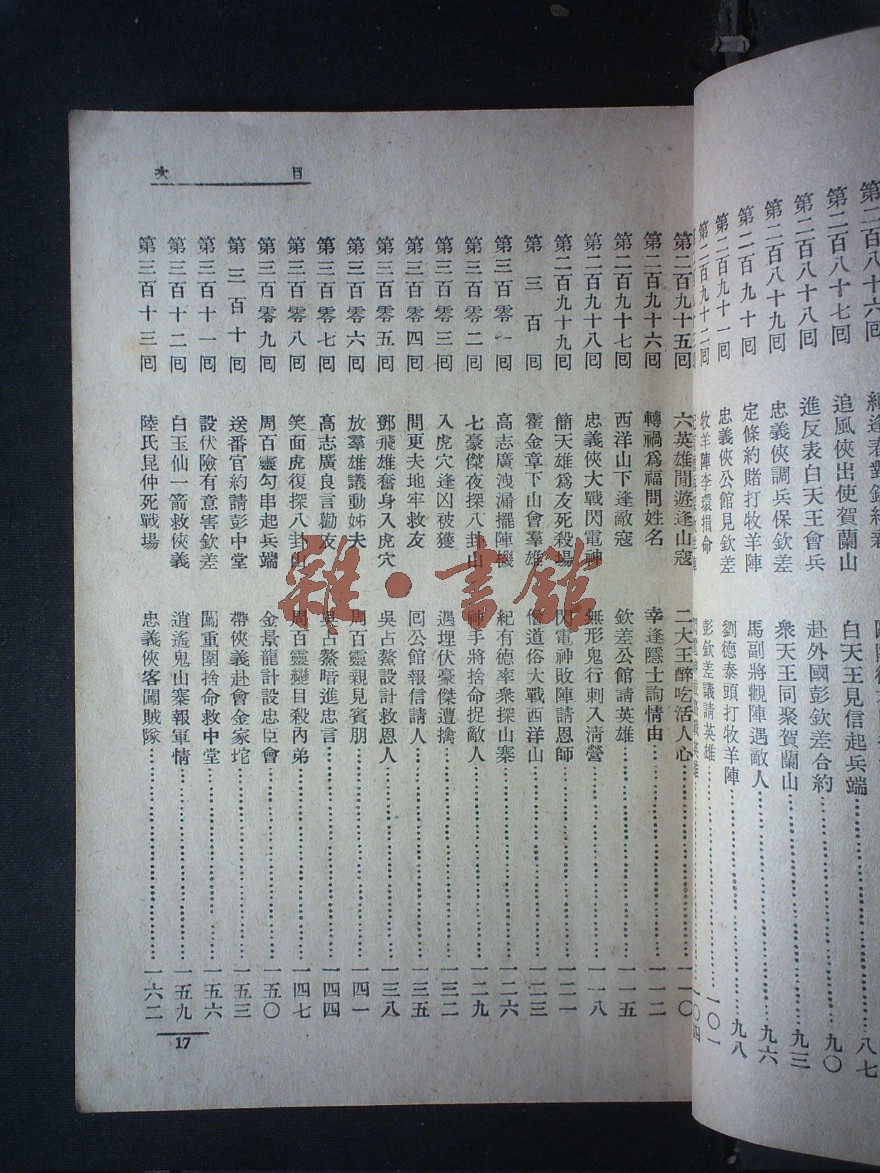 第二百八十六回
八七
第二百八十七回 追風俠出使賀蘭山 白天王見信起兵端 九〇
第二百八十八回 進反表白天王會兵 赴外國彭欽差合約 九三
第二百八十九回 忠義俠調兵保欽差 衆天王同聚賀蘭山 九六
第二百九十回 定條約賭打牧羊陣 馬副將觀陣遇敵人 九八
第二百九十一回 忠義俠公館見欽差 劉德泰頭打牧羊陣 一〇一
第二百九十二回 牧羊陣李環捐命 彭欽差議請英雄 一〇四
目次
第二百九十五回 六英雄閒遊逢山寇 二大王醉吃活人心 一一〇
第二百九十六回 轉禍爲福問姓名 幸逢隱士詢情由 一一二
第二百九十七回 西洋山下逢敵寇 欽差公館請英雄 一一五
第二百九十八回 忠義俠大戰閃電神 無形鬼行刺入清營 一一八
第二百九十九回 簡天雄爲友死殺場 閃電神敗陣請恩師 一二一
第三百回 霍金章下山會羣雄 僧道俗大戰西洋山 一二三
第三百零一回 高志廣洩漏擺陣機 紀有德率衆探山寨 一二六
第三百零二回 七豪傑夜探八卦山 神手將捨命捉敵人 一二九
第三百零三回 入虎穴逢凶被獲 遇埋伏豪傑遭擒 一三二
第三百零四回 問更夫地牢救友 回公館報信請人 一三五
第三百零五回 鄧飛雄奮身入虎穴 吳占鰲設計救恩人 一三八
第三百零六回 放羣雄議動姊夫 周百靈親見賓朋 一四一
第三百零七回 高志廣良言勸友 吳占鰲暗進忠言 一四四
第三百零八回 笑面虎復探八卦山 周百靈變目殺內弟 一四七
第三百零九回 周百靈勾串起兵端 金景龍計設忠臣會 一五〇
第三百十回 送番官約請彭中堂 帶俠義赴會金家坨 一五三
第三百十一回 設伏險有意害欽差 闖重圍捨命救中堂 一五六
第三百十二回 白玉仙一箭救俠義 逍遙鬼山寨報軍情 一五九
第三百十三回 陸氏昆仲死戰場 忠義俠客闖賊隊 一六二
17
雜·書館